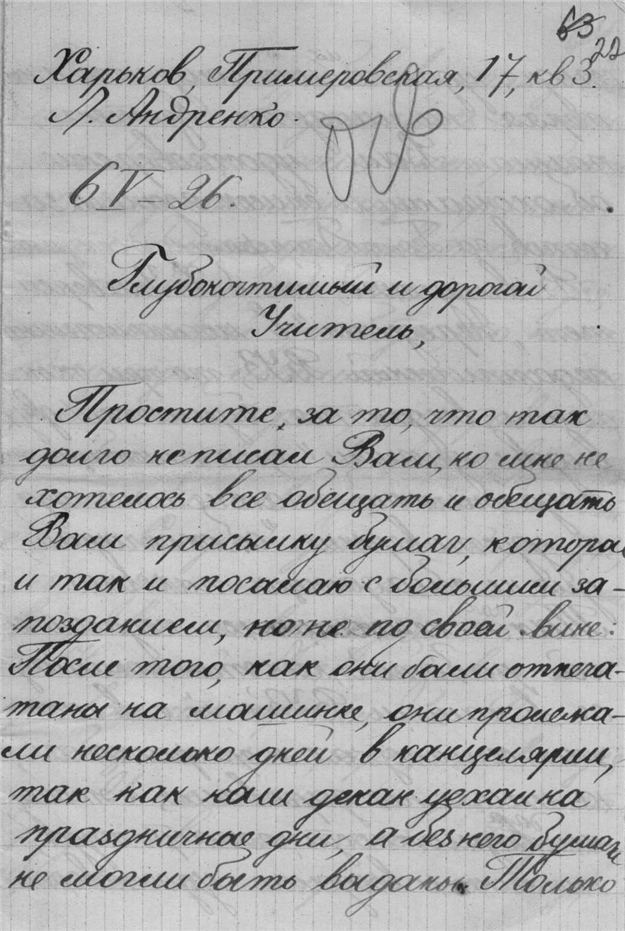 63
22
Харьков, Примеровская, 17, кв 3.
Л. Андренко.
6 V – 26.
Глубокочтимый и дорогой
Учитель,
Простите, за то, что так
долго не писал Вам, но мне не
хотелось все обещать и обещать
Вам присылку бумаг, которые
и так и посылаю с большим за-
позданием, но не по своей вине:
После того, как они были отпеча-
таны на машинке, они пролежа-
ли несколько дней в канцелярии,
так как наш декан уехал на
праздничные дни, а без него бумаги
не могли быть выданы. Только